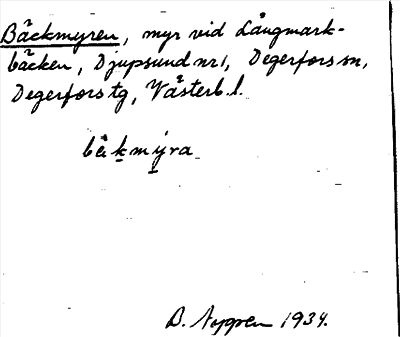 Bäckmyren, myr vid Långmark-
bäcken, Djupsund nr 1, Degerfors sn,
Degerfors tg, Västerb. l.
B. 1934.